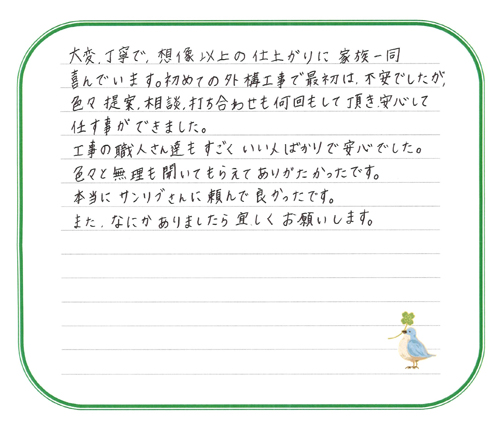 大変、丁寧で、想像以上の仕上がりに家族一同
喜んでいます。初めての外構工事で最初は、不安でしたが、
色々提案、相談、打ち合わせも何回もして頂き、安心して
任す事ができました。
工事の職人さん達もすごくいい人ばかりで安心でした。
色々と無理も聞いてもらえてありがたかったです。
本当にサンリブさんに頼んで良かったです。
また、なにかありましたら宜しくお願いします。